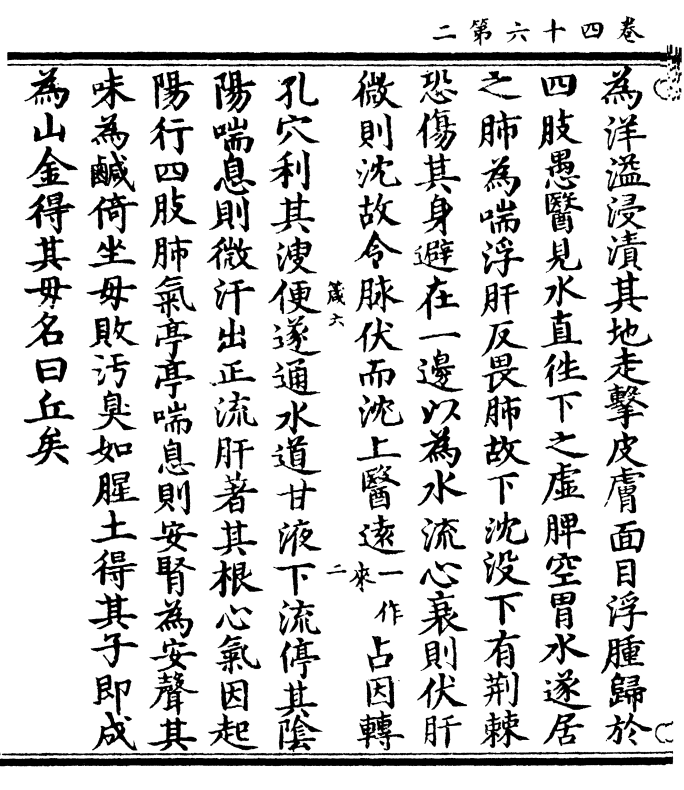 卷四十六第二
為洋溢浸漬其地走擊皮膚面目浮腫歸於
四肢愚醫見水直往下之虛脾空胃水遂居
之肺為喘浮肝反畏肺故下沈没下有荆棘
恐傷其身避在一邊以為水流心衰則伏肝
微則沈故令脉伏而沈上醫遠一作來占因轉
孔穴利其溲便遂通水道甘液下流停其陰
陽喘息則微汗出正流肝著其根心氣因起
陽行四肢肺氣亭亭喘息則安腎為安聲其
味為鹹倚坐母敗汚臭如腥土得其子即成
為山金得其母名曰丘矣
箴六
二